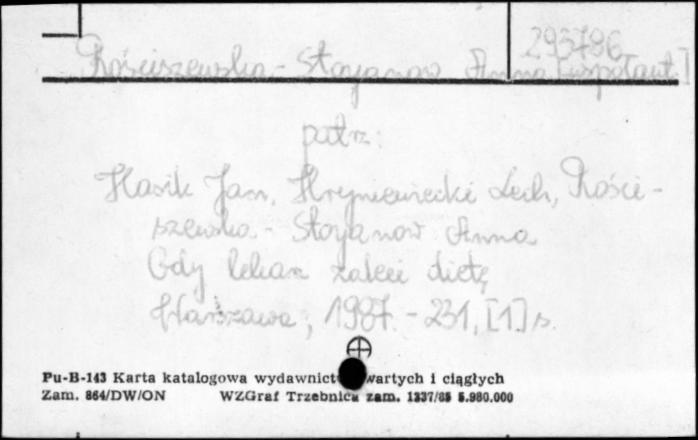 295786
Kościszewska - Stoyanow Anna [współaut.]
patrz:
Hasik Jan, Hryniewiecki Lech, Rości-
szewska - Stoyanow Anna
Gdy lekarz zaleci dietę
Warszawa, 1987. - 231, [1] s.
Pu-B-143 Karta katalogowa wydawnict wartych i ciągłych
Zam. 864/DW/ON WZGraf Trzebnica zam. 1337/85 5.980.000